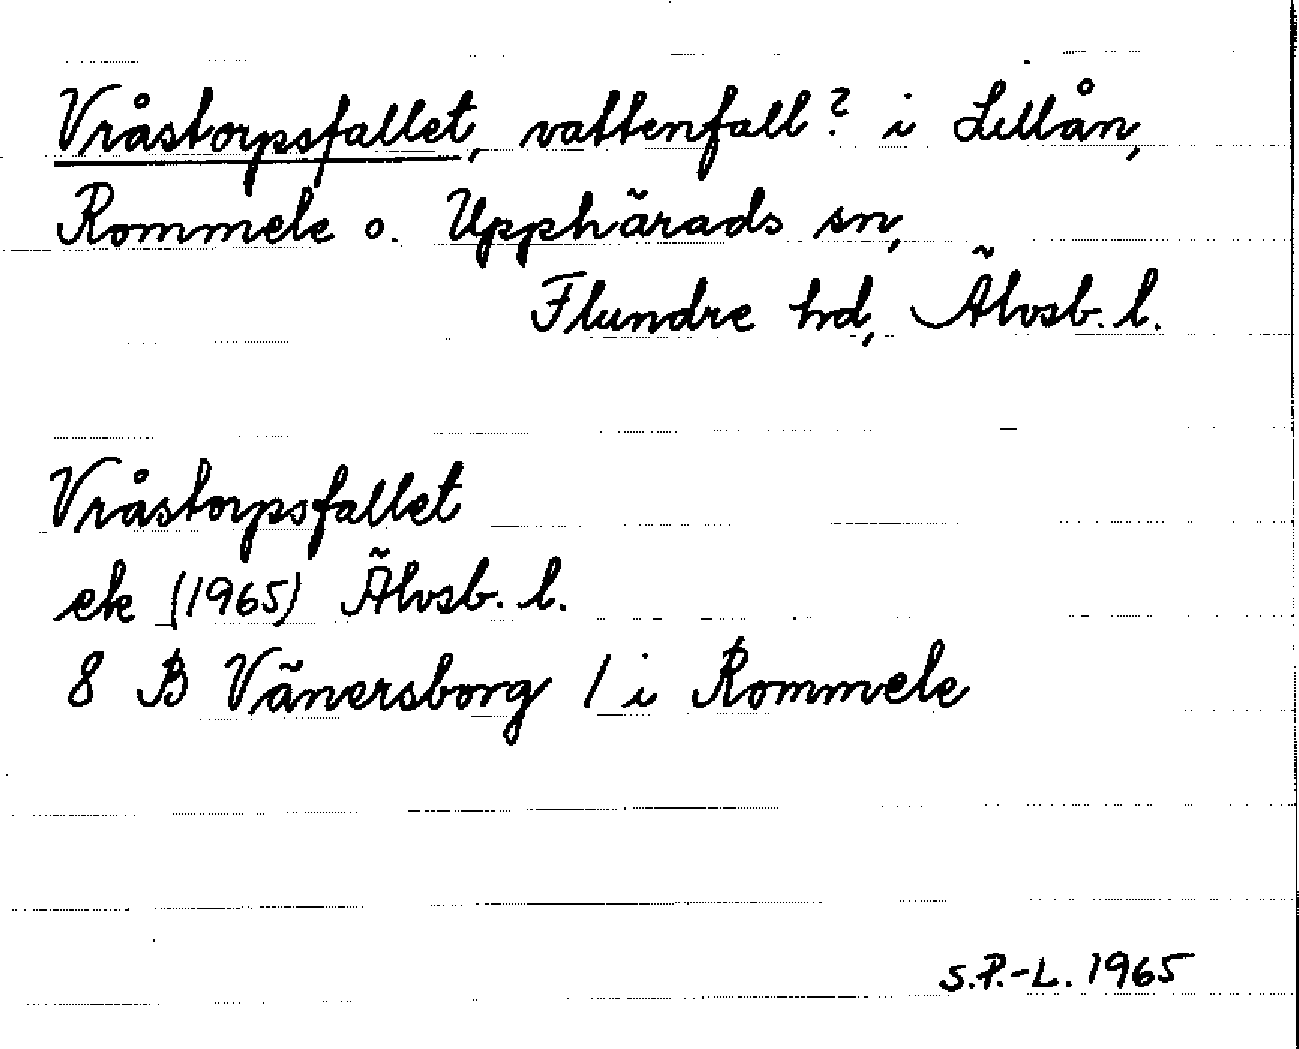 Vråstorpsfallet, vattenfall? i Lillån,
Rommele o. Upphärads sn,
Flundre hd, Älvsb. l.
Vråstorpsfallet
ek (1965) Älvsb. l.
8 B Vänersborg / i Rommele
S.P.-L. 1965